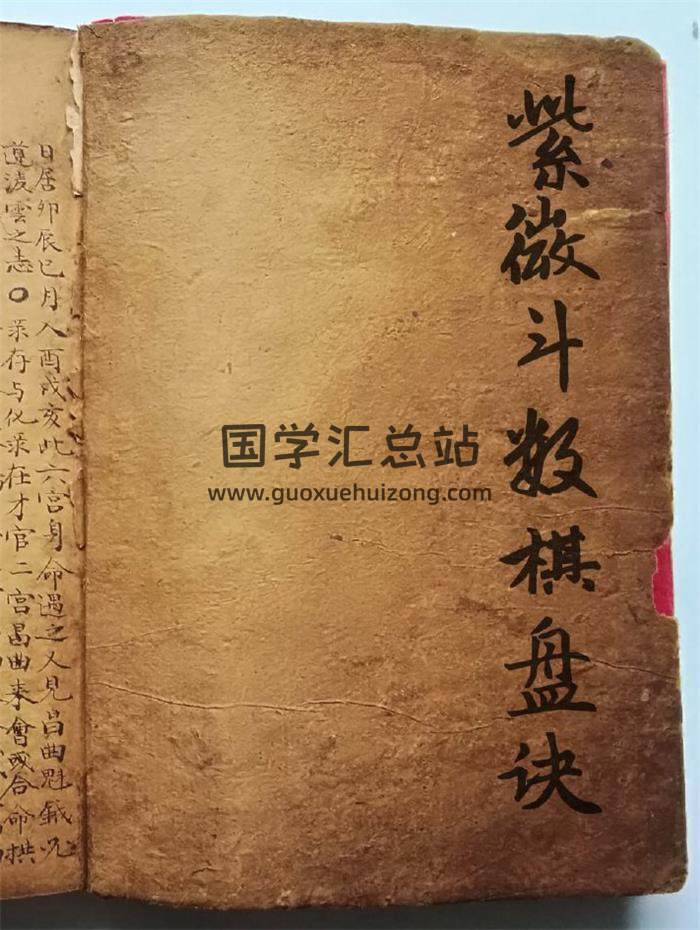 紫微斗数棋盘诀
国学汇总站
www.guoxuehuizong.com
日居卯辰巳月人酉戌亥此六宫身命遇之又見昌曲魁鉞
凌雲之志〇菉存与化菉在才官二宫曷曲来會或合命拱